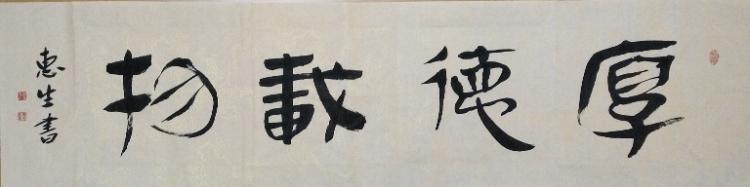 厚德載物
惠生書